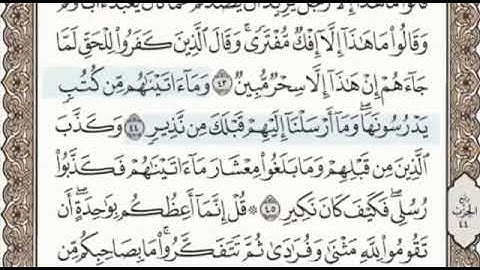 قَالُوا۟ مَا هَٰذَآ إِلَّا رَجُلٌ يُرِيدُ أَن يَصُدَّكُمْ عَمَّا كَانَ يَعْبُدُ ءَابَآؤُكُمْ
وَقَالُوا۟ مَا هَٰذَآ إِلَّآ إِفْكٌ مُّفْتَرًى ۚ وَقَالَ ٱلَّذِينَ كَفَرُوا۟ لِلْحَقِّ لَمَّا
جَآءَهُمْ إِنْ هَٰذَآ إِلَّا سِحْرٌ مُّبِينٌ ٤٣ وَمَآ ءَاتَيْنَٰهُم مِّن كُتُبٍ
يَدْرُسُونَهَا ۖ وَمَآ أَرْسَلْنَآ إِلَيْهِمْ قَبْلَكَ مِن نَّذِيرٍ ٤٤ وَكَذَّبَ
ٱلَّذِينَ مِن قَبْلِهِمْ وَمَا بَلَغُوا۟ مِعْشَارَ مَآ ءَاتَيْنَٰهُمْ فَكَذَّبُوا۟
رُسُلِى ۖ فَكَيْفَ كَانَ نَكِيرِ ٤٥ ۞ قُلْ إِنَّمَآ أَعِظُكُم بِوَٰحِدَةٍ ۖ أَن
تَقُومُوا۟ لِلَّهِ مَثْنَىٰ وَفُرَٰدَىٰ ثُمَّ تَتَفَكَّرُوا۟ ۚ مَا بِصَاحِبِكُم مِّن
ربع
الحزب
٤٤